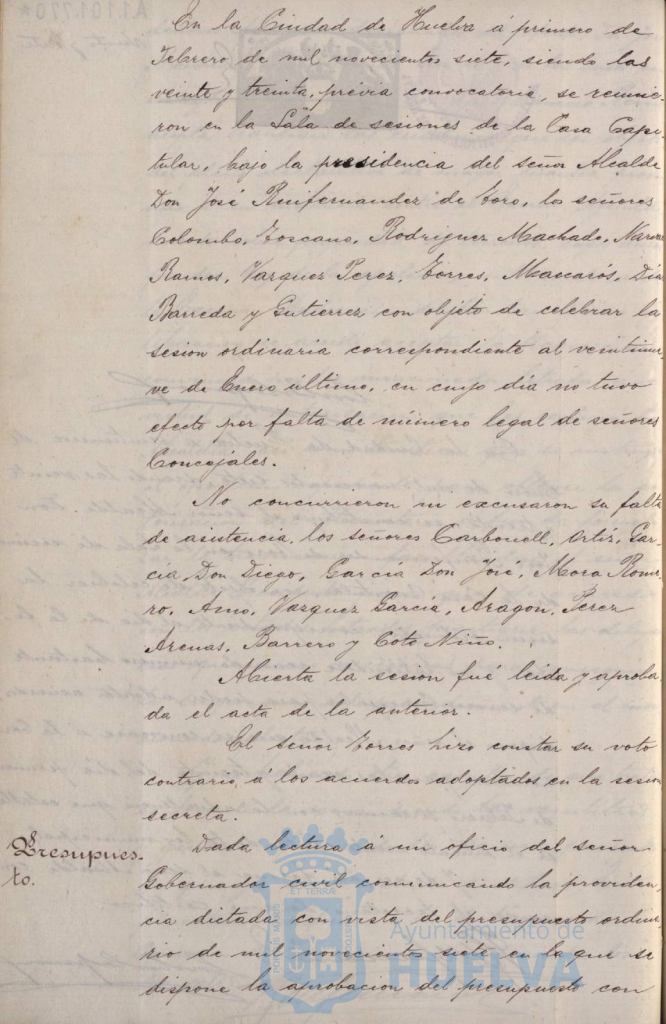 En la Ciudad de Huelva á primero de
Febrero de mil novecientos siete, siendo las
veinte y treinta, prévia convocatoria, se reunie-
ron en la Sala de sesiones de la Casa Capi-
tular, bajo la presidencia del señor Alcalde
Don José Ruifernandez de Toro, los señores
Colombo, Toscano, Rodriguez Machado,
Ramos, Vazquez Perez, Torres, Mascarós, Diaz
Barreda y Gutierrez con objeto de celebrar la
sesion ordinaria correspondiente al veintinue-
ve de Enero último, en cuyo día no tuvo
efecto por falta de número legal de señores
Concejales.
No concurrieron ni excusaron su falta
de asistencia, los señores Carbonell, Ortíz, Gar-
cia Don Diego, García Don José, Mora Rome-
ro, Amo, Vazquez García, Aragon, Perez
Arenas, Barrero y Coto Niño.
Abierta la sesion fué leida y aproba-
da el acta de la anterior.
El señor Torres hizo constar su voto
contrario á los acuerdos adoptados en la sesion
secreta.
Presupues-
to.
Dada lectura á un oficio del señor
Gobernador civil comunicando la providen-
cia dictada con vista del presupuesto ordina-
rio de mil novecientos siete en la que se
dispone la aprobacion del presupuesto con
Ayuntamiento de
HUELVA